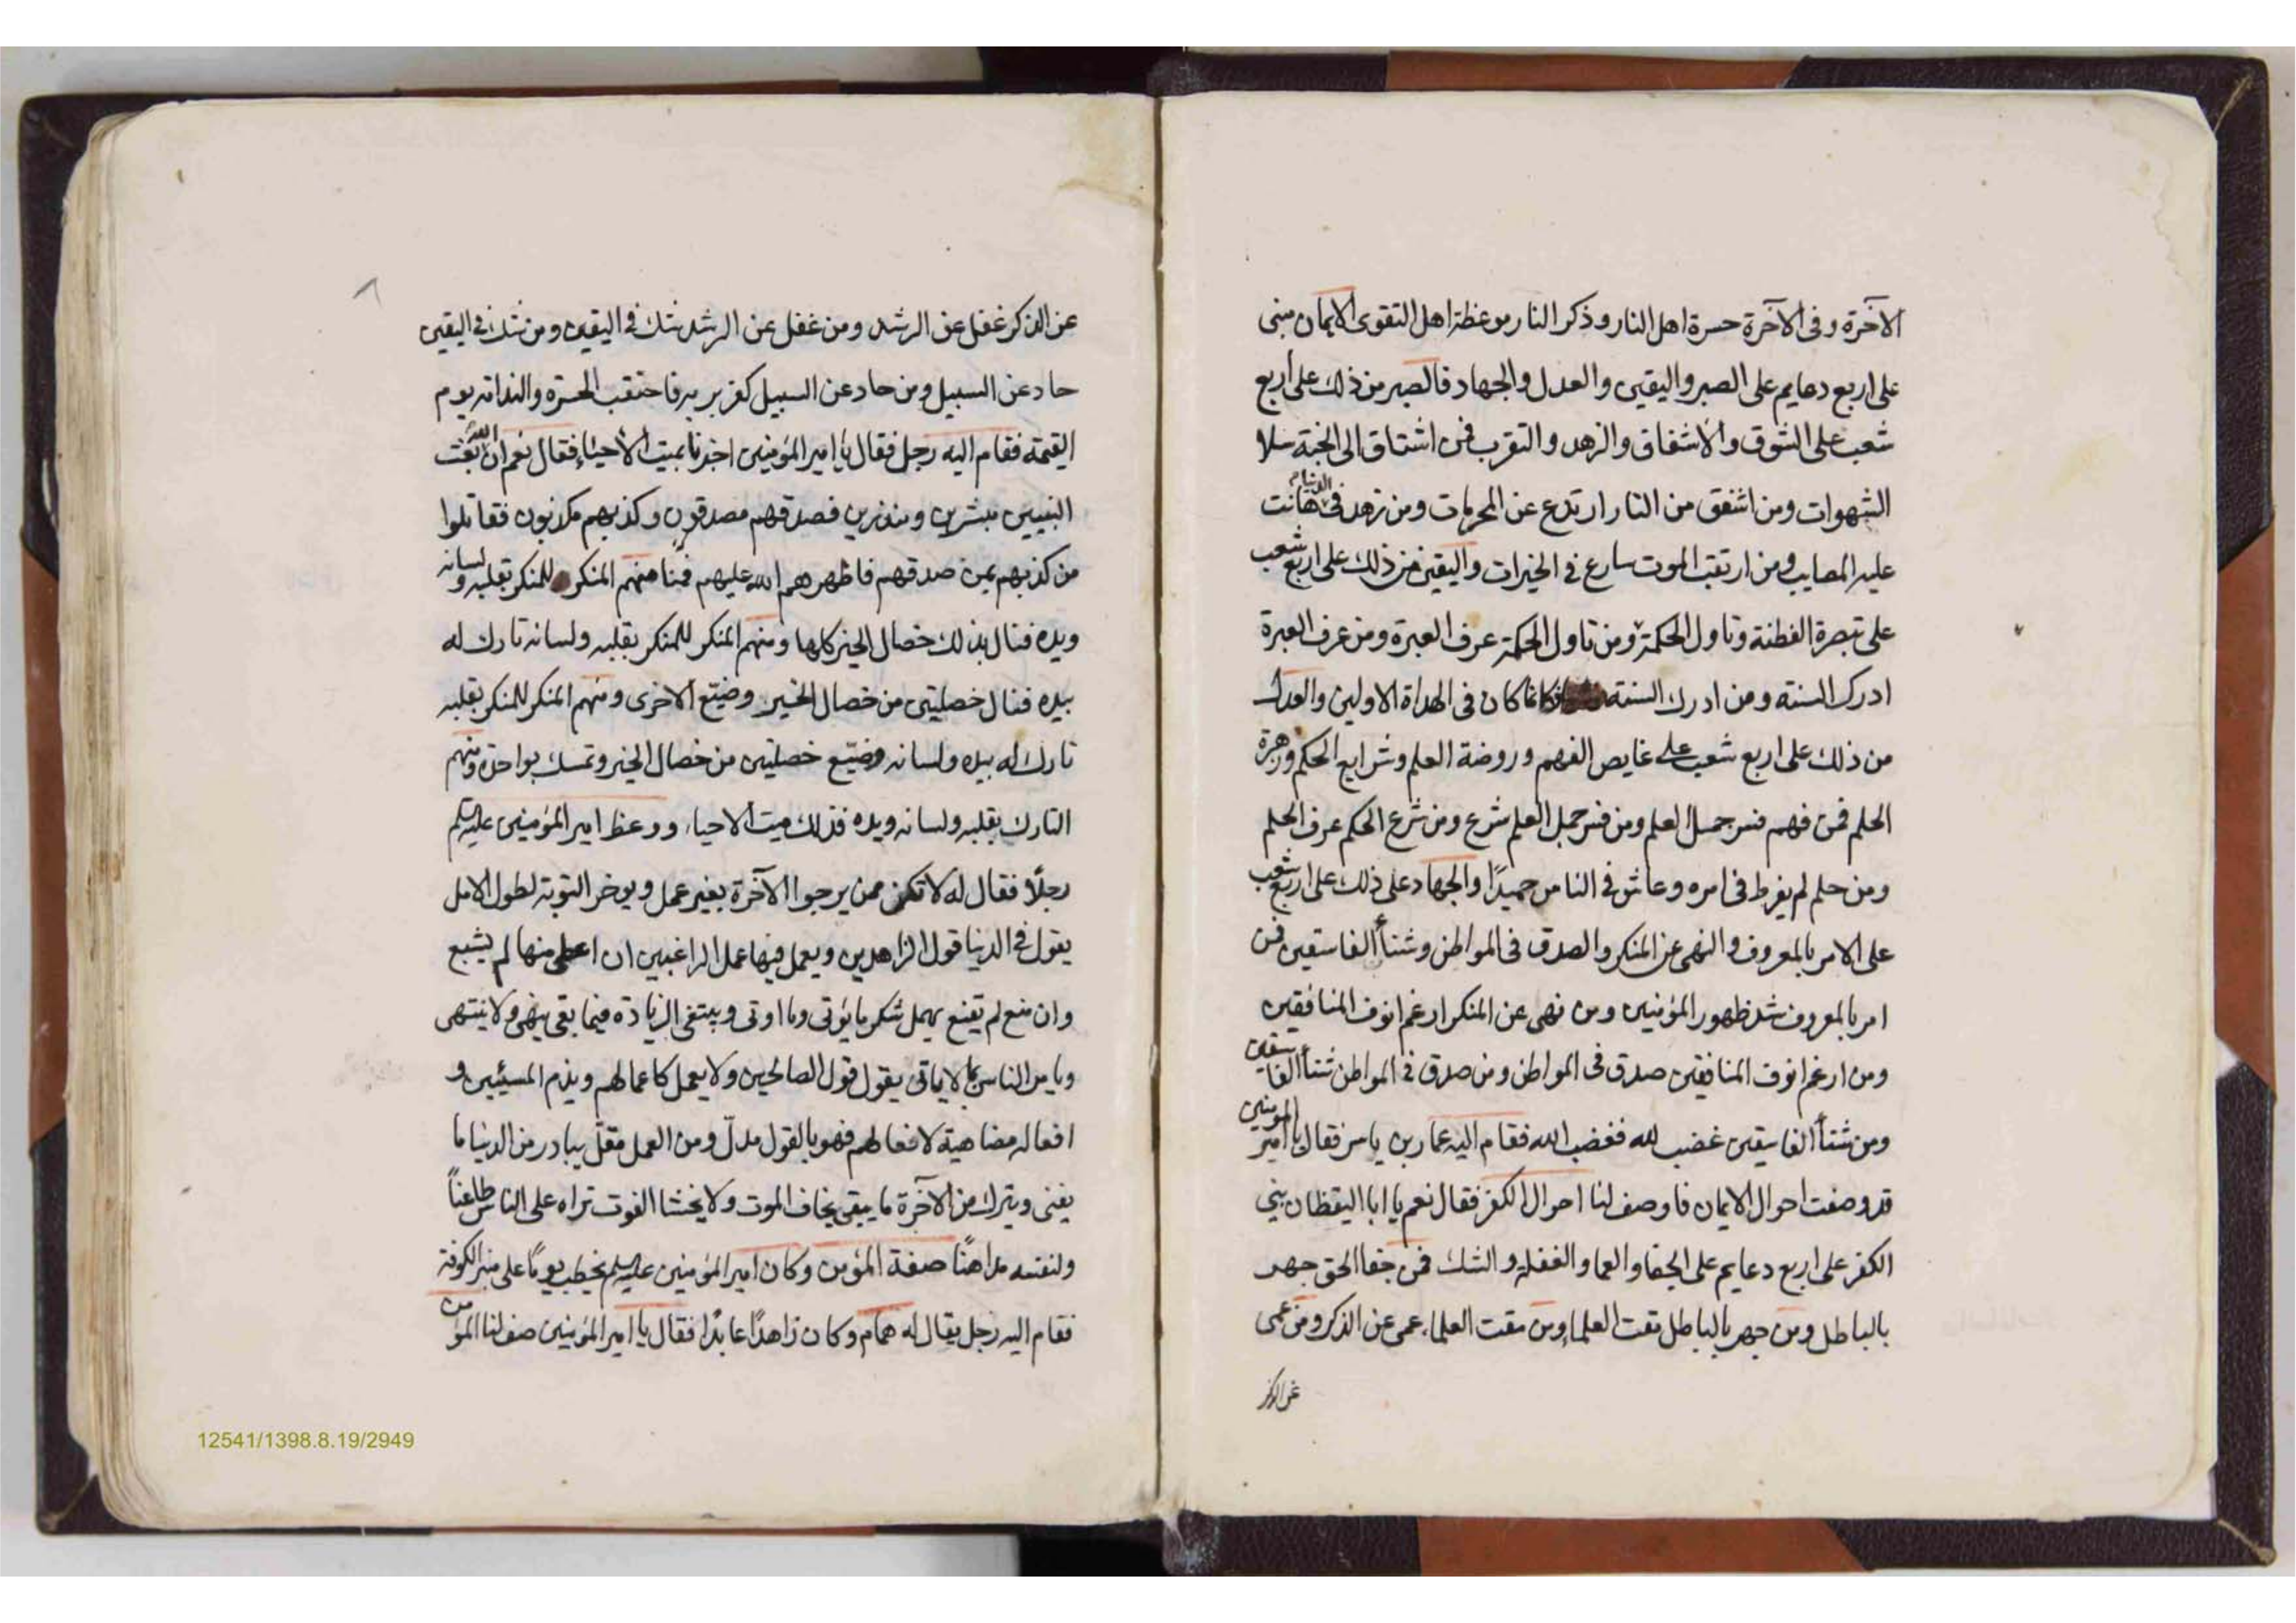 الآخرة وفى الآخرة حسرة اهل النار وذكر النار موعظة اهل التقوى الايمان مبنى
على اربع دعايم على الصبر واليقين والعدل والجهاد فالصبر من ذلك على أربع
شعب على الشوق والاشفاق والزهد والترقب فمن اشتاق الى الجنة سلا
الشهوات ومن اشفق من النار ارتدع عن المحرمات ومن زهد فى الدنيا هانت
عليه المصايب ومن ارتقب الموت سارع في الخيرات واليقين من ذلك على اربع شعب
على تبصرة الفطنة وتاول الحكمة ومن تاول الحكمة عرف العبرة ومن عرف العبرة
ادرك السنته ومن ادرك السنته فكانما كان فى الهداة الاولين والعدل
من ذلك على اربع شعب على غايص الفهم وروضة العلم وشرايع الحكم وزهرة
الحلم فمن فهم فسر جمل العلم ومن فسر جمل العلم شرع ومن شرع الحكم عرف الحلم
ومن حلم لم يفرط فى امره وعاش في الناس حميدًا والجهاد على ذلك على اربع شعب
على الامر بالمعروف والنهى عن المنكر والصدق فى المواطن وشنأ الفاسقين فمن
امر بالمعروف شد ظهور المؤمنين ومن نهى عن المنكر ارغم انوف المنافقين
ومن ارغم انوف المنافقين صدق فى المواطن ومن صدق في المواطن شنأ الفاسقين
ومن شنأ الفاسقين غضب لله فغضب الله فقام اليه عمار بن ياسر فقال يا أمير المومنين
قد وصفت احوال الايمان فاوصف لنا احوال الكفر فقال نعم يا ابا اليقظان بني
الكفر على اربع دعايم على الجفا والعما والغفلة والشك فمن جفا الحق جهر
بالباطل ومن جهر بالباطل مقت العلماء ومن مقت العلماء عمى عن الذكر ومن عمى
عن الذكر
عن الذكر غفل عن الرشد ومن غفل عن الرشد شك في اليقين ومن شك في اليقين
حاد عن السبيل ومن حاد عن السبيل كفر بربه فاحتقب الحسرة والندامة يوم
القيمة فقام اليه رجل فقال يا امير المؤمنين اخبرنا بميت الأحياء فقال نعم ان الله بعث
النبيين مبشرين ومنذرين فصدقهم مصدقون وكذبهم مكذبون فقاتلوا
من كذبهم بمن صدقهم فاظهرهم الله عليهم فمنهم المنكر للمنكر بقلبه ولسانه
ويده فنال بذلك خصال الخير كلها ومنهم المنكر للمنكر بقلبه ولسانه تارك له
بيده فنال خصلتين من خصال الخير وضيّع الاخرى ومنهم المنكر للمنكر بقلبه
تارك له بيده ولسانه وضيّع خصلتين من خصال الخير وتمسك بواحدة ومنهم
التارك بقلبه ولسانه ويده فذلك ميت الاحياء ووعظ امير المؤمنين عليه السلم
رجلًا فقال له لا تكن ممن يرجوا الآخرة بغير عمل ويوخر التوبة لطول الامل
يقول في الدنيا قول الزاهدين ويعمل فيها عمل الراغبين ان اعطى منها لم يشبع
وان منع لم يقنع يهمل شكر ما يؤتى وما اوتى ويبتغى الزيادة فيما بقى ينهى ولا ينتهى
ويامر الناس بما لا ياتى يقول قول الصالحين ولا يعمل كاعمالهم ويذم المسيئين و
افعاله مضاهية لافعالهم فهو بالقول مدلّ ومن العمل مقلّ يبادر من الدنيا ما
يفنى ويترك من الآخرة ما يبقى يخاف الموت ولا يخشا الفوت تراه على الناس طاعناً
ولنفسه مداهنًا صفة المؤمن وكان امير المؤمنين عليه السلم يخطب يومًا على منبر الكوفة
فقام اليه رجل يقال له همام وكان زاهدًا عابدًا فقال يا امير المؤمنين صف لنا المؤمن
12541/1398.8.19/2949